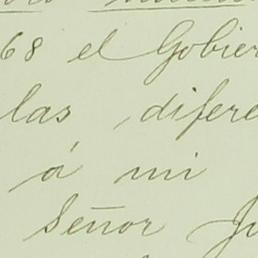 68 el Gobier
las difere
á mi
Señor Ju